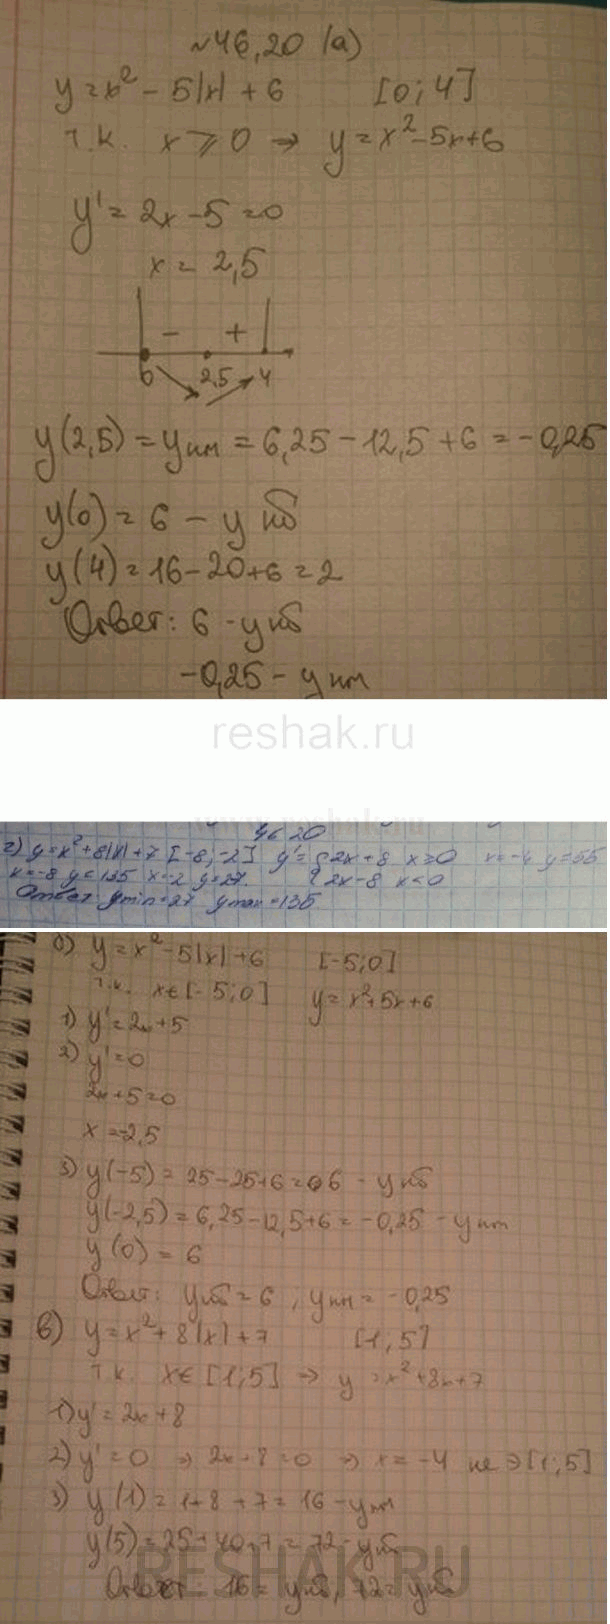 №46,20 (а)
y = x² - 5|x| + 6 [0; 4]
т.к. x ⩾ 0 → y = x² - 5x + 6
y' = 2x - 5 = 0
x = 2,5
- +
0 2,5 4
y(2,5) = y нм = 6,25 - 12,5 + 6 = -0,25
y(0) = 6 - y нб
y(4) = 16 - 20 + 6 = 2
Ответ: 6 - y нб
-0,25 - y нм
reshak.ru
46 20
г) y = x² + 8|x| + 7 [-8, -2] y' = { 2x + 8 x ⩾ 0 x = -4 y = 55
x = -8 y = 135 x = -2 y = 27. { 2x - 8 x < 0
Ответ ymin = 27 ymax = 135
б) y = x² - 5|x| + 6 [-5; 0]
т.к. x ∈ [-5; 0] y = x² + 5x + 6
1) y' = 2x + 5
2) y' = 0
2x + 5 = 0
x = -2,5
3) y(-5) = 25 - 25 + 6 = 6 - y нб
y(-2,5) = 6,25 - 12,5 + 6 = -0,25 - y нм
y(0) = 6
Ответ: y нб = 6; y нм = -0,25
в) y = x² + 8|x| + 7 [1, 5]
т.к. x ∈ [1; 5] → y = x² + 8x + 7
1) y' = 2x + 8
2) y' = 0 → 2x + 8 = 0 → x = -4 не ∋ [1; 5]
3) y(1) = 1 + 8 + 7 = 16 - y нм
y(5) = 25 + 40 + 7 = 72 - y нб
Ответ 16 = y нб, 72 = y нб
RESHAK.RU